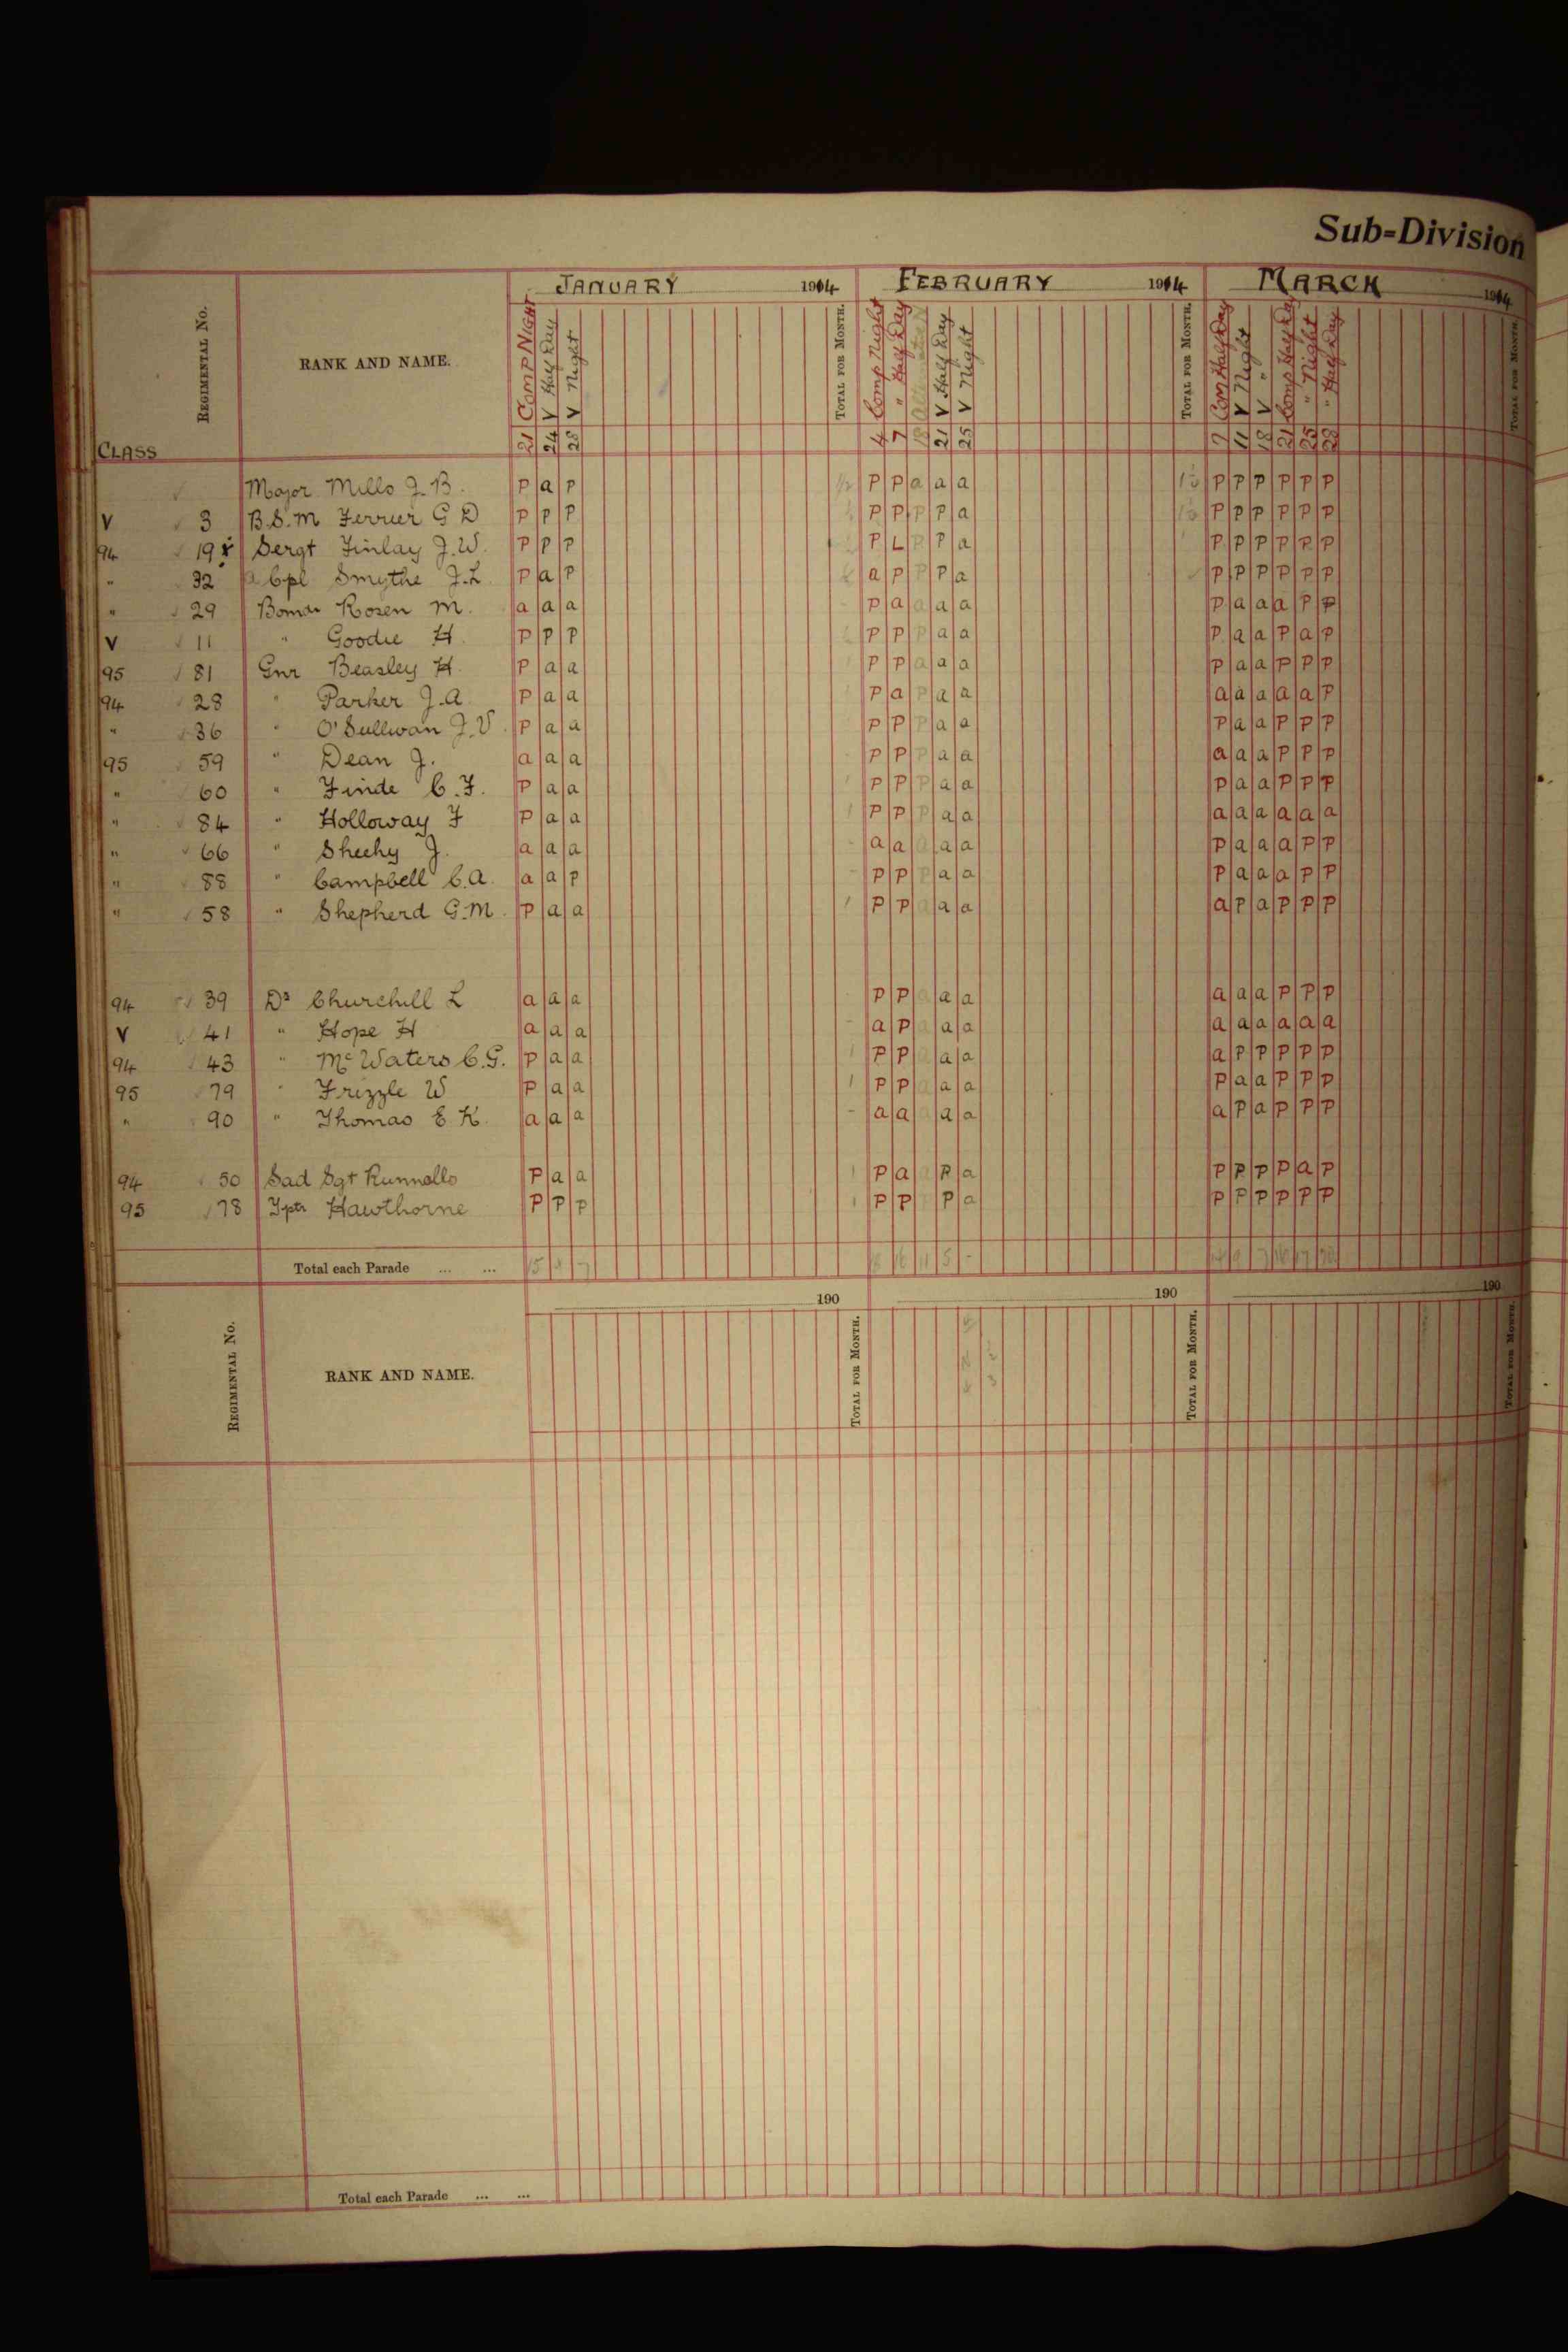 Sub-Division
JANUARY 1914 FEBRUARY 1914 MARCH 1914
CLASS REGIMENTAL No. RANK AND NAME. 21 COMP NIGHT 24 V Half Day 28 V Night TOTAL FOR MONTH. 4 Comp Night 7 " Half Day 18 21 V Half Day 25 V Night TOTAL FOR MONTH. 7 Com Half Day 11 V Night 18 V " 21 Comp Half Day 25 " Night 28 " Half Day TOTAL FOR MONTH.
Major Mills J. B. P a P 1/2 P P a a a 1½ P P P P P P
V 3 B.S.M Ferrier G D P P P P P P P a 1½ P P P P P P
94 19 Sergt Finlay J.W. P P P P L P P a P P P P P P
" 32 a Cpl Smythe J.L. P a P a P P P a P P P P P P
" 29 Bomdr Rosen M. a a a - P a a a a P a a a P P
V 11 " Goodie H. P P P P P P a a P a a P a P
95 81 Gnr Beasley H. P a a 1 P P a a a P a a P P P
94 28 " Parker J.A. P a a 1 P a P a a a a a a a P
" 36 " O'Sullivan J.V. P a a P P P a a P a a P P P
95 59 " Dean J. a a a - P P P a a a a a P P P
" 60 " Finde C.F. P a a 1 P P P a a P a a P P P
" 84 " Holloway F P a a 1 P P P a a a a a a a a
" 66 " Sheehy J. a a a - a a a a a P a a a P P
" 88 " Campbell C.A. a a P - P P P a a P a a a P P
" 58 " Shepherd G.M. P a a 1 P P a a a a P a P P P
94 39 Dr Churchill L a a a P P a a a a a a P P P
V 41 " Hope H a a a - a P a a a a a a a a a
94 43 " McWaters C.G. P a a 1 P P a a a a P P P P P
95 79 " Frizzle W P a a 1 P P a a a P a a P P P
" 90 " Thomas E K. a a a - a a a a a a P a P P P
94 50 Sad Sgt Runnalls P a a 1 P a a P a P P P P a P
95 78 Tptr Hawthorne P P P 1 P P P P a P P P P P P
Total each Parade ... ... 15 7 16 11 5 - 7 16 17
190 190 190
REGIMENTAL No. RANK AND NAME. TOTAL FOR MONTH. TOTAL FOR MONTH. TOTAL FOR MONTH.
Total each Parade ... ...